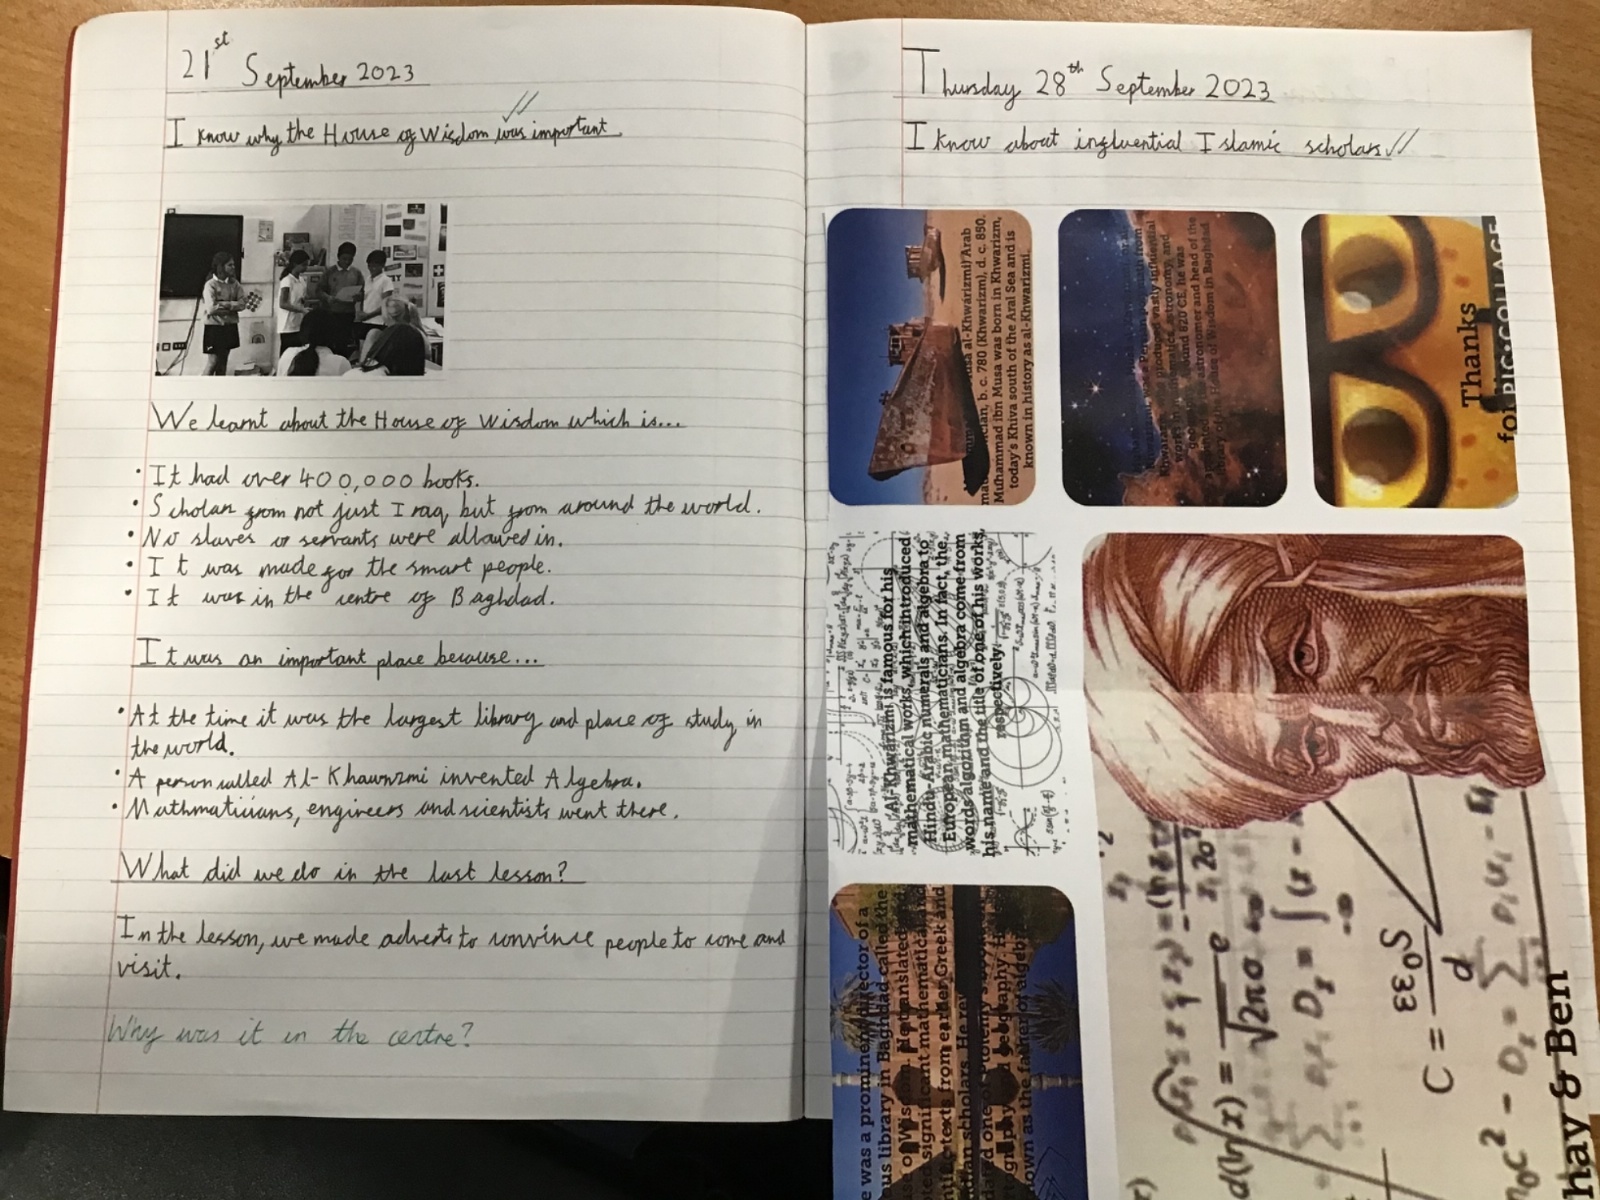 21st September 2023
I know why the House of Wisdom was important
We learnt about the House of Wisdom which is...
• It had over 400,000 books.
• Scholars from not just Iraq, but from around the world.
• No slaves or servants were allowed in.
• It was made for the smart people.
• It was in the centre of Baghdad.
It was an important place because...
• At the time it was the largest library and place of study in
the world.
• A person called Al-Khawrizmi invented Algebra.
• Mathmaticians, engineers and scientists went there.
What did we do in the last lesson?
In the lesson, we made adverts to convince people to come and
visit.
Why was it in the centre?
Thursday 28th September 2023
I know about influential Islamic scholars
al-Khwārizmī) Arab
b. c. 780 (Khwarizm), d. c. 850.
Muhammad ibn Musa was born in Khwarizm,
today's Khiva south of the Aral Sea and is
known in history as al-Khwarizmi.
was a
produced vastly influential
works in mathematics, astronomy, and
Around 820 CE, he was
astronomer and head of the
library of the House of Wisdom in Baghdad
Thanks
for PIC•COLLAGE
Al-Khwarizmi is famous for his
mathematical works, which introduced
Hindu-Arabic numerals and algebra to
European mathematicians. In fact, the
words algorithm and algebra come from
his name and the title of one of his works,
respectively.
e was a prominent director of a
library in Baghdad called the
translated
significant mathematical and
texts from earlier Greek and
Indian scholars. He
one of Ptolemy's
geography. He
known as the father of algebra
C = εε0S
d
hay & Ben